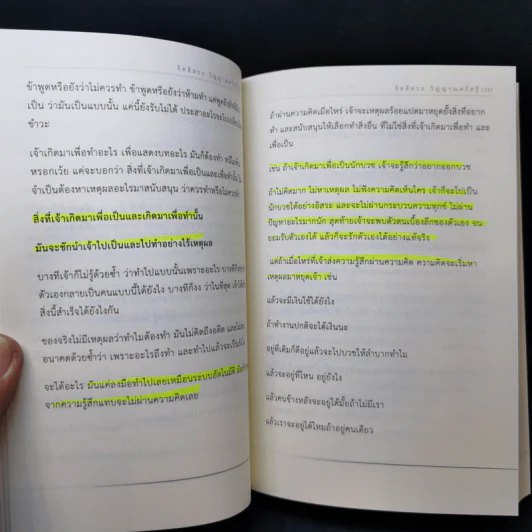 จิตอิสระ วิญญาณตรัสรู้
ข้าพูดหรือยังว่าไม่ควรทำ ข้าพูดหรือยังว่าห้ามทำ แค่พูดถึงสิ่งที่
เป็น ว่ามันเป็นแบบนั้น แค่นี้ยังรับไม่ได้ ประสาอะไรจะไป
ชำวะ
เจ้าเกิดมาเพื่อทำอะไร เพื่อแสดงบทอะไร มันก็ต้องทำ หนีไม่พ้น
หรอกเว้ย แค่จะบอกว่า สิ่งที่เจ้าเกิดมาเพื่อเป็นและเพื่อทำนั้น
จำเป็นต้องหาเหตุผลอะไรมาสนับสนุน ว่าควรทำหรือไม่ควรทำ
สิ่งที่เจ้าเกิดมาเพื่อเป็นและเกิดมาเพื่อทำนั้น
มันจะชักนำเจ้าไปเป็นและไปทำอย่างไร้เหตุผล
บางทีเจ้าก็ไม่รู้ด้วยซ้ำ ว่าทำไปแบบนั้นเพราะอะไร บางที
ตัวเองกลายเป็นคนแบบนี้ได้ยังไง บางทีก็งง ว่าในที่สุด
สิ่งนี้สำเร็จได้ยังไงกัน
ของจริงไม่มีเหตุผลว่าทำไมต้องทำ มันไม่คิดถึงอดีต และไม่สน
อนาคตด้วยซ้ำว่า เพราะอะไรถึงทำ และทำไปแล้วจะเป็นยังไง
จะได้อะไร มันแค่ลงมือทำไปเลยเหมือนระบบอัตโนมัติ
จากความรู้สึกแทบจะไม่ผ่านความคิดเลย
จิตอิสระ วิญญาณตรัสรู้
ถ้าผ่านความคิดเมื่อไหร่ เจ้าจะเหตุผลร้อยแปดมาหยุดยั้งสิ่งที่อยาก
ทำ และสนับสนุนให้เลือกทำสิ่งอื่น ที่ไม่ใช่สิ่งที่เจ้าเกิดมาเพื่อทำ และ
เพื่อเป็น
เช่น ถ้าเจ้าเกิดมาเพื่อเป็นนักบวช เจ้าจะรู้สึกว่าอยากออกบวช
ถ้าไม่คิดมาก ไม่หาเหตุผล ไม่ฟังความคิดเห็นใคร เจ้าก็จะไปเป็น
นักบวชได้อย่างอิสระ และจะไม่ผ่านกระบวนความทุกข์ ไม่ผ่าน
ปัญหาอะไรมากนัก สุดท้ายเจ้าจะพบตัวตนเบื้องลึกของตัวเอง จน
ยอมรับตัวเองได้ แล้วก็จะรักตัวเองได้อย่างแท้จริง
แต่ถ้าเมื่อไหร่ที่เจ้าส่งความรู้สึกผ่านความคิด ความคิดจะเริ่มหา
เหตุผลมาหยุดเจ้า เช่น
แล้วจะมีเงินใช้ได้ยังไง
ถ้าทำงานปกติจะได้เงินนะ
อยู่ที่เดิมก็ดีอยู่แล้วจะไปบวชให้ลำบากทำไม
แล้วจะอยู่ที่ไหน อยู่ยังไง
แล้วคนข้างหลังจะอยู่ได้มั้ยถ้าไม่มีเรา
แล้วเราจะอยู่ได้ไหมถ้าอยู่คนเดียว